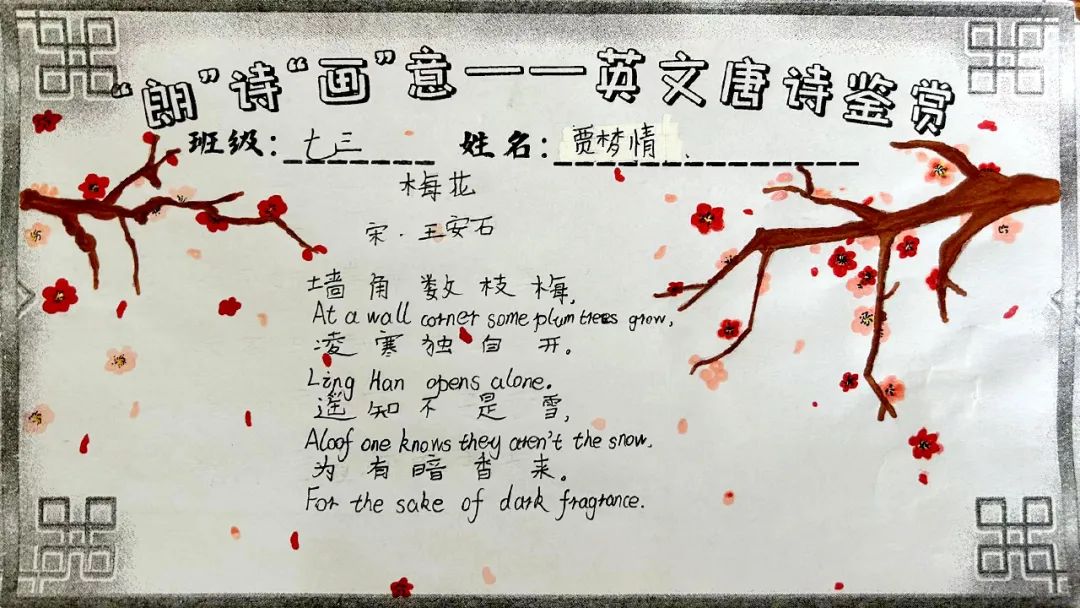 “朗”诗“画”意——英文唐诗鉴赏
班级：七三 姓名：贾梦情
梅花
宋·王安石
墙角数枝梅，
At a wall corner some plum trees grow,
凌寒独自开。
Ling Han opens alone.
遥知不是雪，
Aloof one knows they aren't the snow.
为有暗香来。
For the sake of dark fragrance.